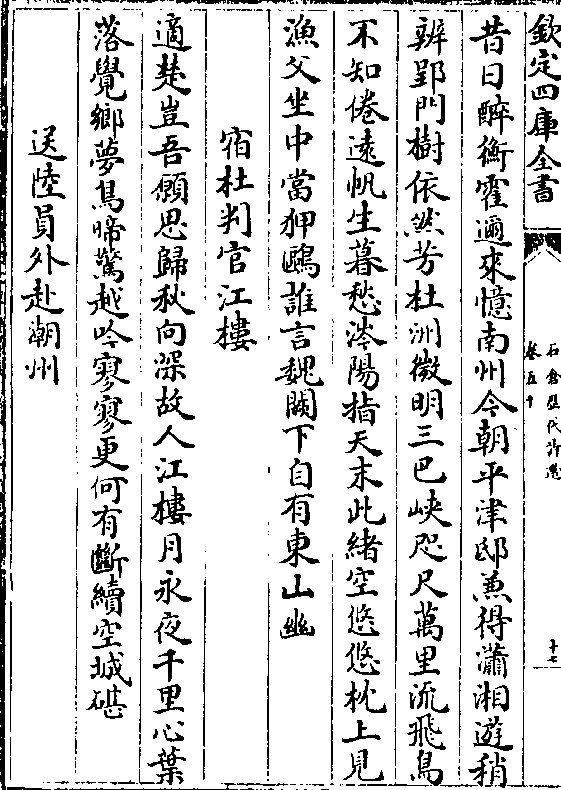 欽定四庫全書
石倉歷代詩選
卷五十
十七
昔日醉衡霍邇來憶南州今朝平津邸兼得瀟湘遊稍
辨郢門樹依然芳杜洲微明三巴峽咫尺萬里流飛鳥
不知倦遠帆生暮愁涔陽指天末此緒空悠悠枕上見
漁父坐中當狎鷗誰言魏闕下自有東山幽
宿杜判官江樓
適楚豈吾願思歸秋向深故人江樓月永夜千里心葉
落覺鄉夢鳥啼驚越吟寥寥更何有斷續空城碪
送陸員外赴潮州